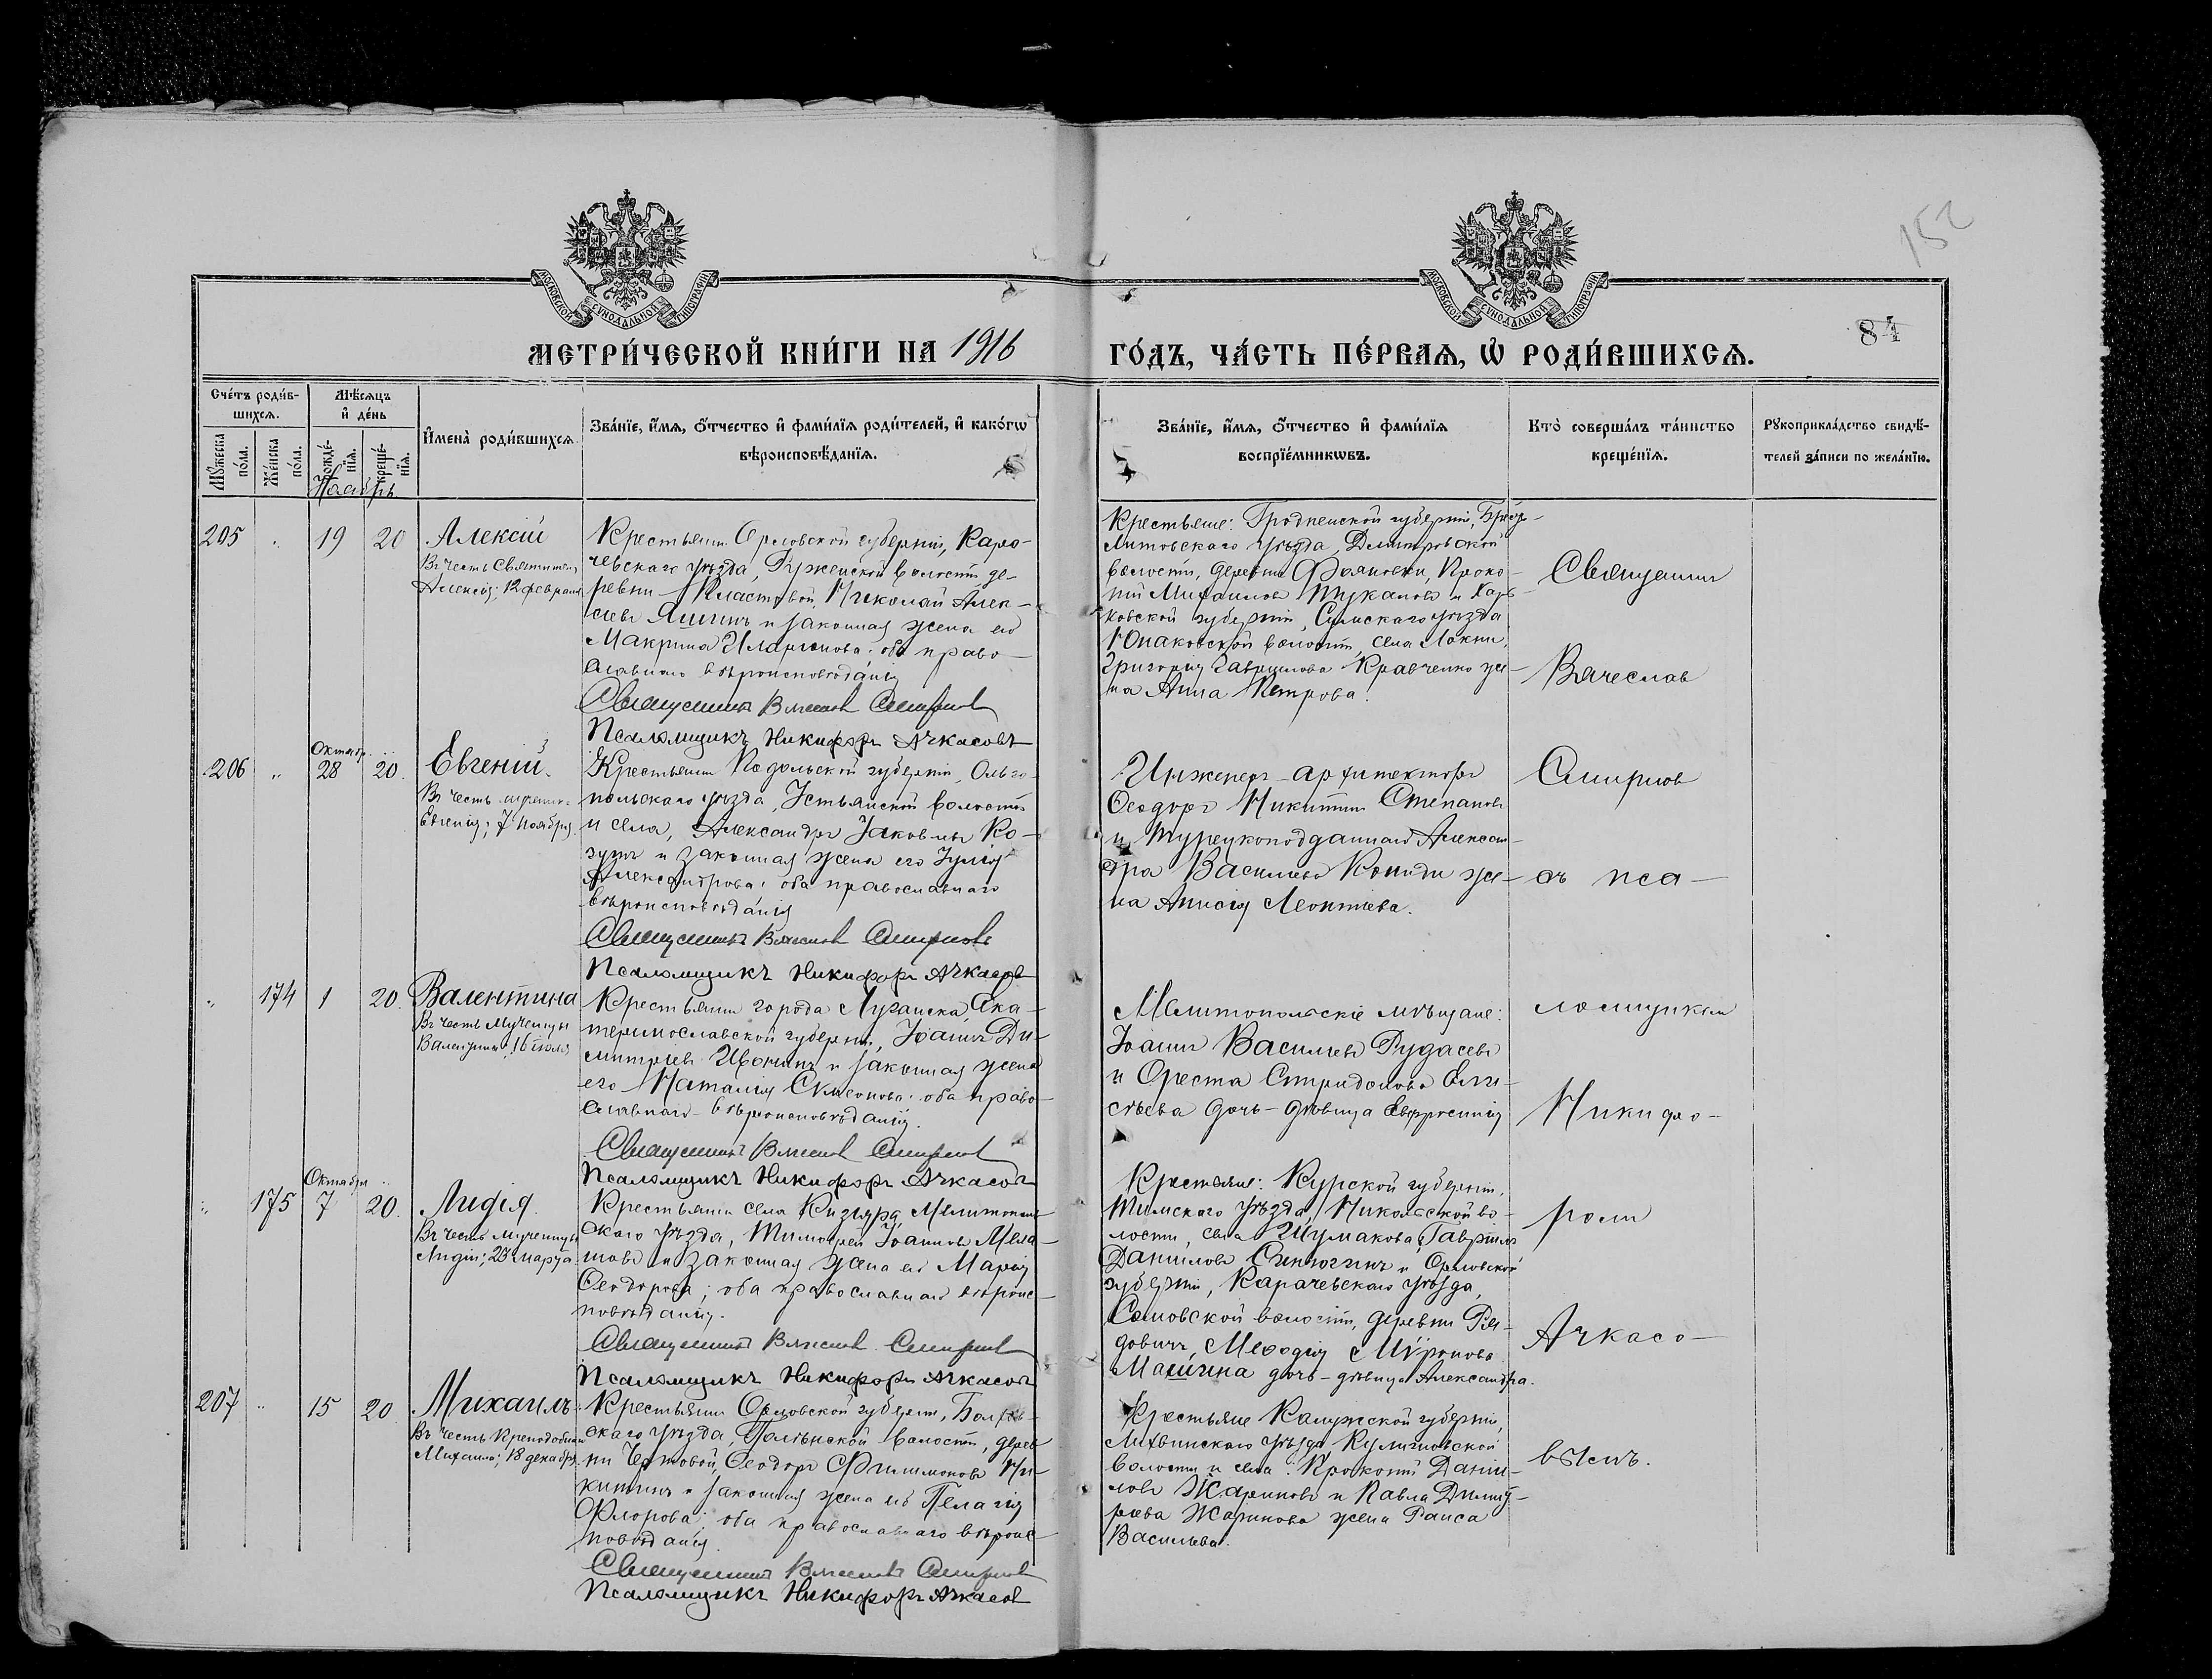 152
МОСКОВСКОЙ СѴНОДАЛЬНОЙ ТИПОГРАФІИ
МОСКОВСКОЙ СѴНОДАЛЬНОЙ ТИПОГРАФІИ
84
МЕТРИ́ЧЕСКОЙ КНИ́ГИ НА 1916
ГО́ДЪ, ЧА́СТЬ ПЕ́РВАѦ, Ѽ РОДИ́ВШИХСѦ.
Сче́тъ роди́в-
шихсѧ.
Мꙋ́жеска по́ла.
Же́нска по́ла.
Мѣ́сѧцъ
и҆ де́нь
Рожде́-
нїѧ.
креще́-
нїѧ.
И҆мена̀ роди́вшихсѧ
Зва́нїе, и҆́мѧ, ѻ҆́тчество и҆ фами́лїѧ роди́телей, и҆ како́гѡ
вѣроисповѣ́данїѧ.
Зва́нїе, и҆́мѧ, ѻ҆́тчество и҆ фами́лїѧ
воспрїе́мникѡвъ.
Кто̀ соверша́лъ та́инство
креще́нїѧ.
Рꙋкоприкла́дство свидѣ́-
телей за́писи по жела́нїю.
Ноябрь
205 " 19 20 Алексій
Въ честь Святителя
Алексія; 12 февраля
Крестьянинъ Орловской губерніи, Кара-
чевскаго уѣзда, Руженской волости де-
ревни Пластовой, Николай Алек-
сѣевъ Яшинъ и законная жена его
Макрина Иларіонова; оба право-
славнаго вѣроисповѣданія
Священникъ Вячеславъ Смирновъ
Псаломщикъ Никифоръ Ачкасовъ
Крестьяне: Гродненской губерніи, Брест-
Литовскаго уѣзда, Дмитровской
волости, деревни Прoко-
пій Михаиловъ и Харь-
ковской губерніи, Сумскаго уѣзда
Юнаковской волости, села Локни,
Григорія Гаврилова Кравченко же-
на Анна Петрова.
Священникъ
Вячеславъ
Октябрь
206 " 28 20. Евгеній.
Въ честь мученика
Евгенія; 7 ноября.
Крестьянинъ Подольской губерніи, Ольго-
польскаго уѣзда, Устьянской волости
и села, Александръ Іаковлевъ Ко-
зунъ и законная жена его Іулія
Александрова; оба православнаго
вѣроисповѣданія
Священникъ Вячеславъ Смирновъ
Псаломщикъ Никифоръ Ачкасовъ
Инженеръ-архитекторъ
Ѳеодоръ Никитинъ Степановъ
и Турецкоподданнаго Алексан-
дра Васильева Кониди же-
на Анисія Леонтіева.
Смирновъ
съ пса-
" 174 1 20. Валентина
Въ честь Мученицы
Валентины; 16 іюля
Крестьянинъ города Луганска, Ека-
теринославской губерніи, Іоаннъ Ди-
митріевъ Ивонинъ и законная жена
его Наталія Симеонова; оба право-
славнаго вѣроисповѣданія.
Священникъ Вячеславъ Смирновъ
Псаломщикъ Никифоръ Ачкасовъ
Мелитопольскіе мѣщане:
Іоаннъ Васильевъ Рудасевъ
и Ореста Спиридонова Ели-
сѣева дочь-дѣвица Евфросинія
ломщикомъ
Никифо-
Октябрь
" 175 7 20. Лидія.
Въ честь мученицы
Лидіи; 23 марта.
Крестьянинъ села Кизіяра, Мелитополь-
скаго уѣзда, Тимоѳей Іоанновъ
и законная жена его Марія
Ѳеодорова; оба православнаго вѣроис-
повѣданія.
Священникъ Вячеславъ Смирновъ
Псаломщикъ Никифоръ Ачкасовъ
Крестьяне: Курской губерніи,
Тимскаго уѣзда, Никольской во-
лости, села Шумакова, Гавріилъ
Даниловъ и Орловской
губерніи, Карачевскаго уѣзда,
волости, деревни
Меѳодія Мѵронова
Машина дочь-дѣвица Александра.
ромъ
Ачкасо-
207 " 15 20. Михаилъ.
Въ честь Преподобнаго
Михаила; 18 декабря.
Крестьянинъ Орловской губерніи, Болхов-
скаго уѣзда, волости, дерев-
ни Чертовой, Ѳеодоръ Филимоновъ Ни-
китинъ и законная жена его Пелагія
Флорова; оба православнаго вѣроис-
повѣданія.
Священникъ Вячеславъ Смирновъ
Псаломщикъ Никифоръ Ачкасовъ
Крестьяне Калужской губерніи,
Лихвинскаго уѣзда,
волости и села: Прокопій Дании-
ловъ Жариновъ и Павла Димит-
ріева Жаринова жена Раиса
Васильева.
вымъ.